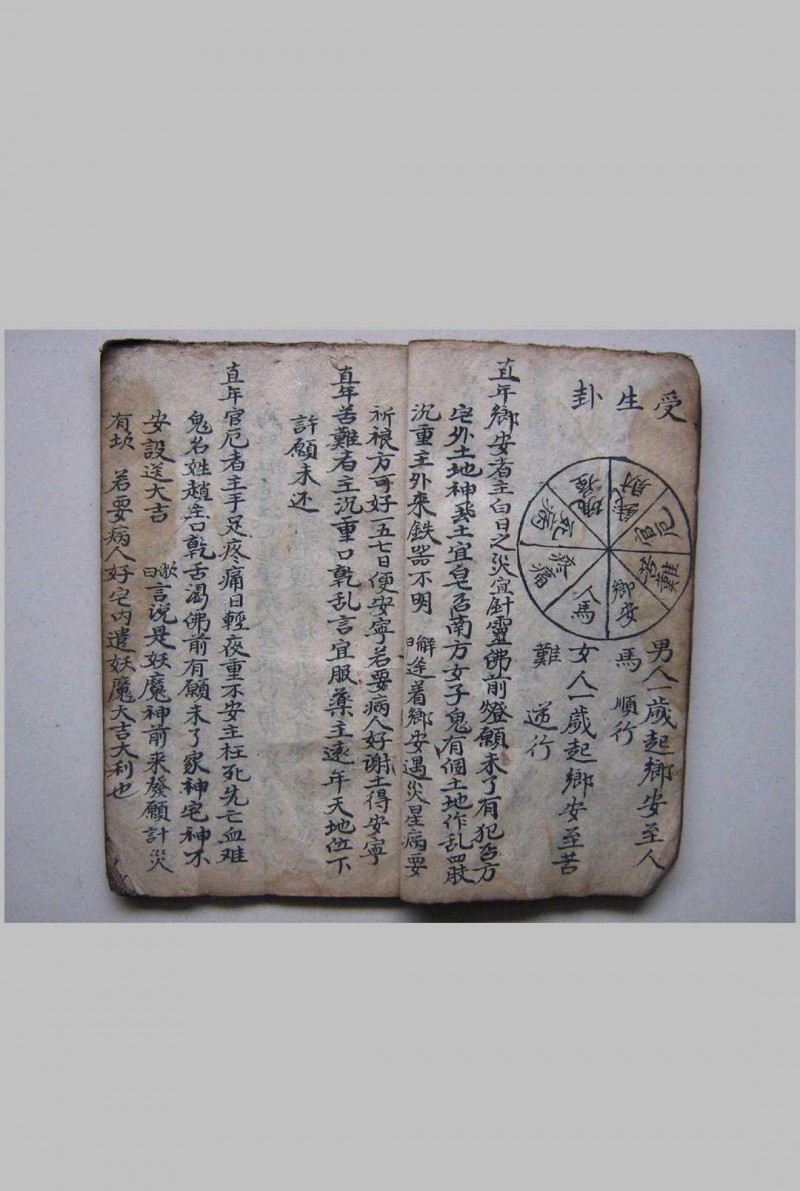 受生卦
鄉安
人馬
疼痛
死病
財
官厄
苦難
男人一歲起鄉安至人
馬 順行
女人一歲起鄉安至苦
難 逆行
直年鄉安者主白日之災宜針靈佛前燈願未了有犯 方
宅外土地神 土宜皂 南方女子鬼有個土地作乱四肢
沉重主外來鉄器不明 解 逢着鄉安遇災星病要
祈禳方可好一五七日便安寧若要病人好謝土得安寧
直年苦難者主沉重口乾乱言宜服藥主遠年天地位下
許願未还
直年官厄者主手足疼痛日輕夜重不安主枉死先亡血难
鬼名姓趙 口乾舌渴佛前有願未了家神宅神不
安設送大吉 歌曰 言說是妖魔神前來發願計災
有坎 若要病人好宅內遣妖魔大吉大利也